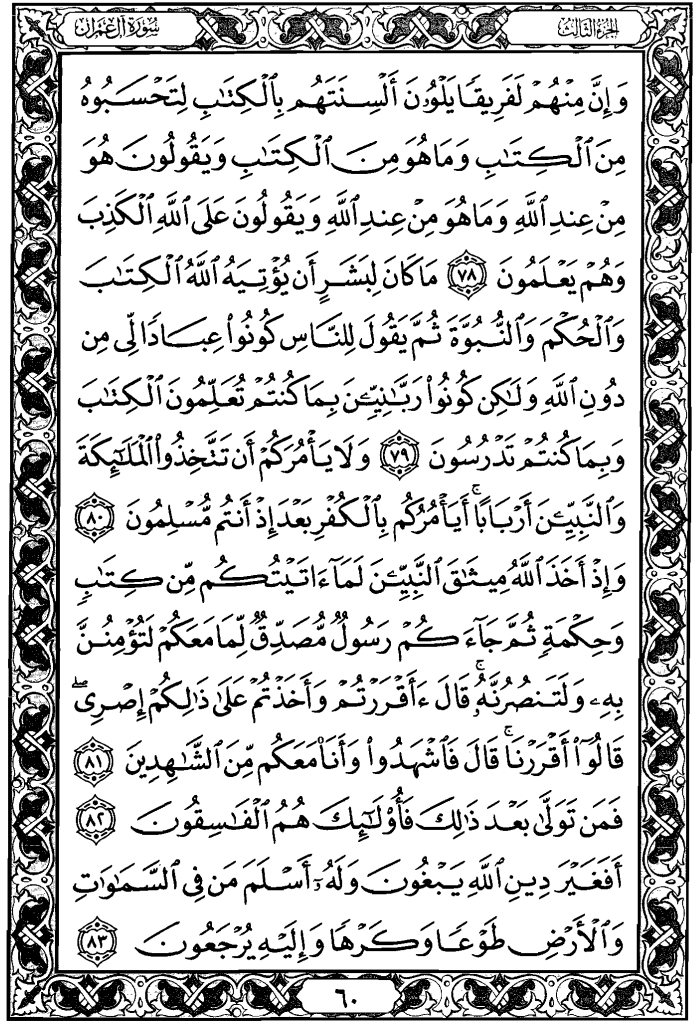 الجزء الثالث
سورة آل عمران
وَإِنَّ مِنْهُمْ لَفَرِيقًا يَلْوُۥنَ أَلْسِنَتَهُم بِٱلْكِتَٰبِ لِتَحْسَبُوهُ
مِنَ ٱلْكِتَٰبِ وَمَا هُوَ مِنَ ٱلْكِتَٰبِ وَيَقُولُونَ هُوَ
مِنْ عِندِ ٱللَّهِ وَمَا هُوَ مِنْ عِندِ ٱللَّهِ وَيَقُولُونَ عَلَى ٱللَّهِ ٱلْكَذِبَ
وَهُمْ يَعْلَمُونَ ٧٨ مَا كَانَ لِبَشَرٍ أَن يُؤْتِيَهُ ٱللَّهُ ٱلْكِتَٰبَ
وَٱلْحُكْمَ وَٱلنُّبُوَّةَ ثُمَّ يَقُولَ لِلنَّاسِ كُونُوا۟ عِبَادًا لِّى مِن
دُونِ ٱللَّهِ وَلَٰكِن كُونُوا۟ رَبَّٰنِيِّـۧنَ بِمَا كُنتُمْ تُعَلِّمُونَ ٱلْكِتَٰبَ
وَبِمَا كُنتُمْ تَدْرُسُونَ ٧٩ وَلَا يَأْمُرَكُمْ أَن تَتَّخِذُوا۟ ٱلْمَلَٰٓئِكَةَ
وَٱلنَّبِيِّـۧنَ أَرْبَابًا ۗ أَيَأْمُرُكُم بِٱلْكُفْرِ بَعْدَ إِذْ أَنتُم مُّسْلِمُونَ ٨٠
وَإِذْ أَخَذَ ٱللَّهُ مِيثَٰقَ ٱلنَّبِيِّـۧنَ لَمَآ ءَاتَيْتُكُم مِّن كِتَٰبٍ
وَحِكْمَةٍ ثُمَّ جَآءَكُمْ رَسُولٌ مُّصَدِّقٌ لِّمَا مَعَكُمْ لَتُؤْمِنُنَّ
بِهِۦ وَلَتَنصُرُنَّهُۥ ۚ قَالَ ءَأَقْرَرْتُمْ وَأَخَذْتُمْ عَلَىٰ ذَٰلِكُمْ إِصْرِى ۖ
قَالُوٓا۟ أَقْرَرْنَا ۚ قَالَ فَٱشْهَدُوا۟ وَأَنَا۠ مَعَكُم مِّنَ ٱلشَّٰهِدِينَ ٨١
فَمَن تَوَلَّىٰ بَعْدَ ذَٰلِكَ فَأُو۟لَٰٓئِكَ هُمُ ٱلْفَٰسِقُونَ ٨٢
أَفَغَيْرَ دِينِ ٱللَّهِ يَبْغُونَ وَلَهُۥٓ أَسْلَمَ مَن فِى ٱلسَّمَٰوَٰتِ
وَٱلْأَرْضِ طَوْعًا وَكَرْهًا وَإِلَيْهِ يُرْجَعُونَ ٨٣
٦٠